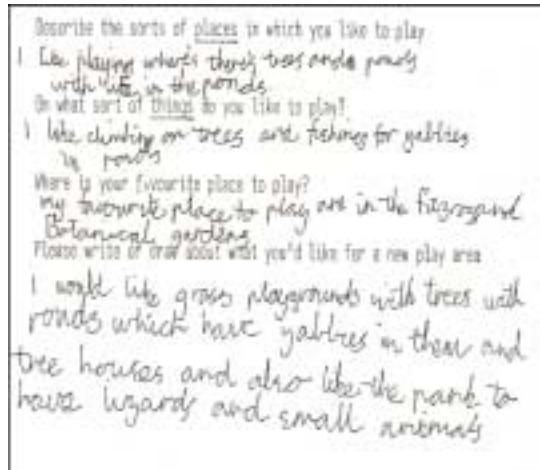 Describe the sorts of places in which you like to play
I like playing where's there's trees and ponds
with life in the ponds
On what sort of things do you like to play?
I like climbing on trees and fishing for yabbies
in ponds
Where is your favourite place to play?
my favourite place to play are in the and
Botanical gardens
Please write or draw about what you'd like for a new play area
I would like grass playgrounds with trees with
ponds which have yabbies in them and
tree houses and also like the park to
have lizards and small animals